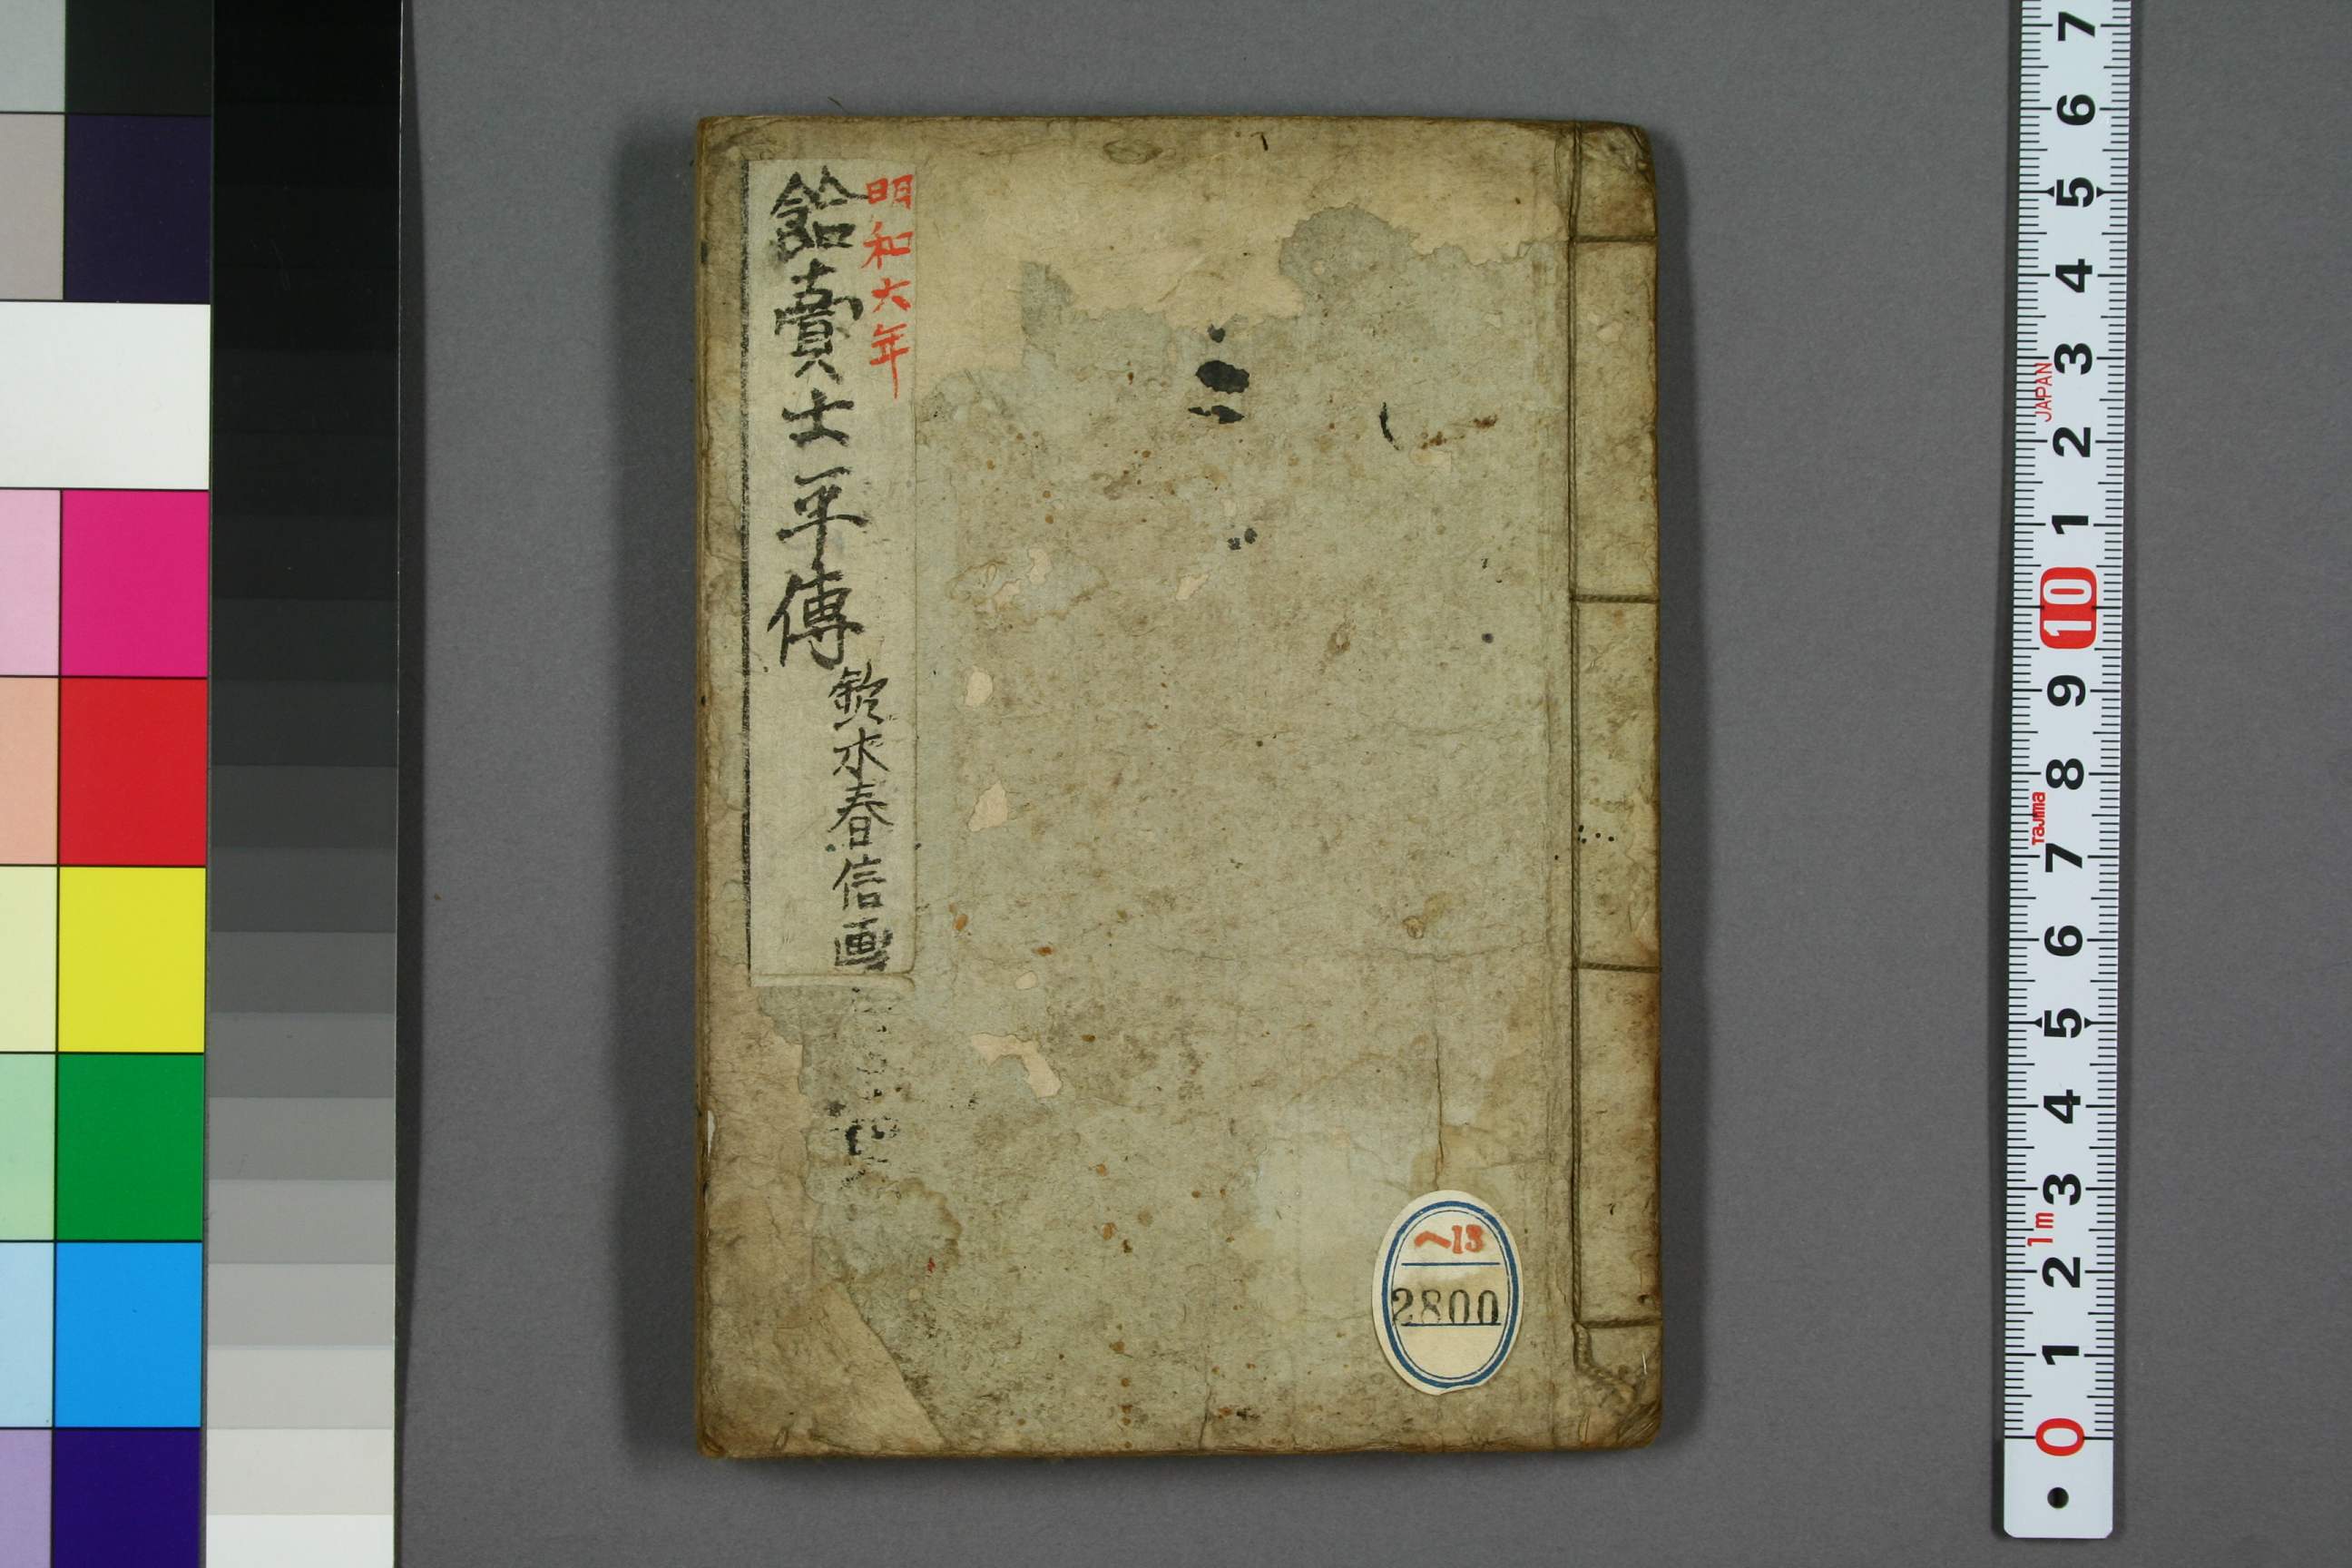 明和六年
飴賣土平傳
鈴木春信画
へ13
2800
7
6
5
4
3
2
1
10
9
8
7
6
5
4
3
2
1
0
JAPAN
Tajima
1m